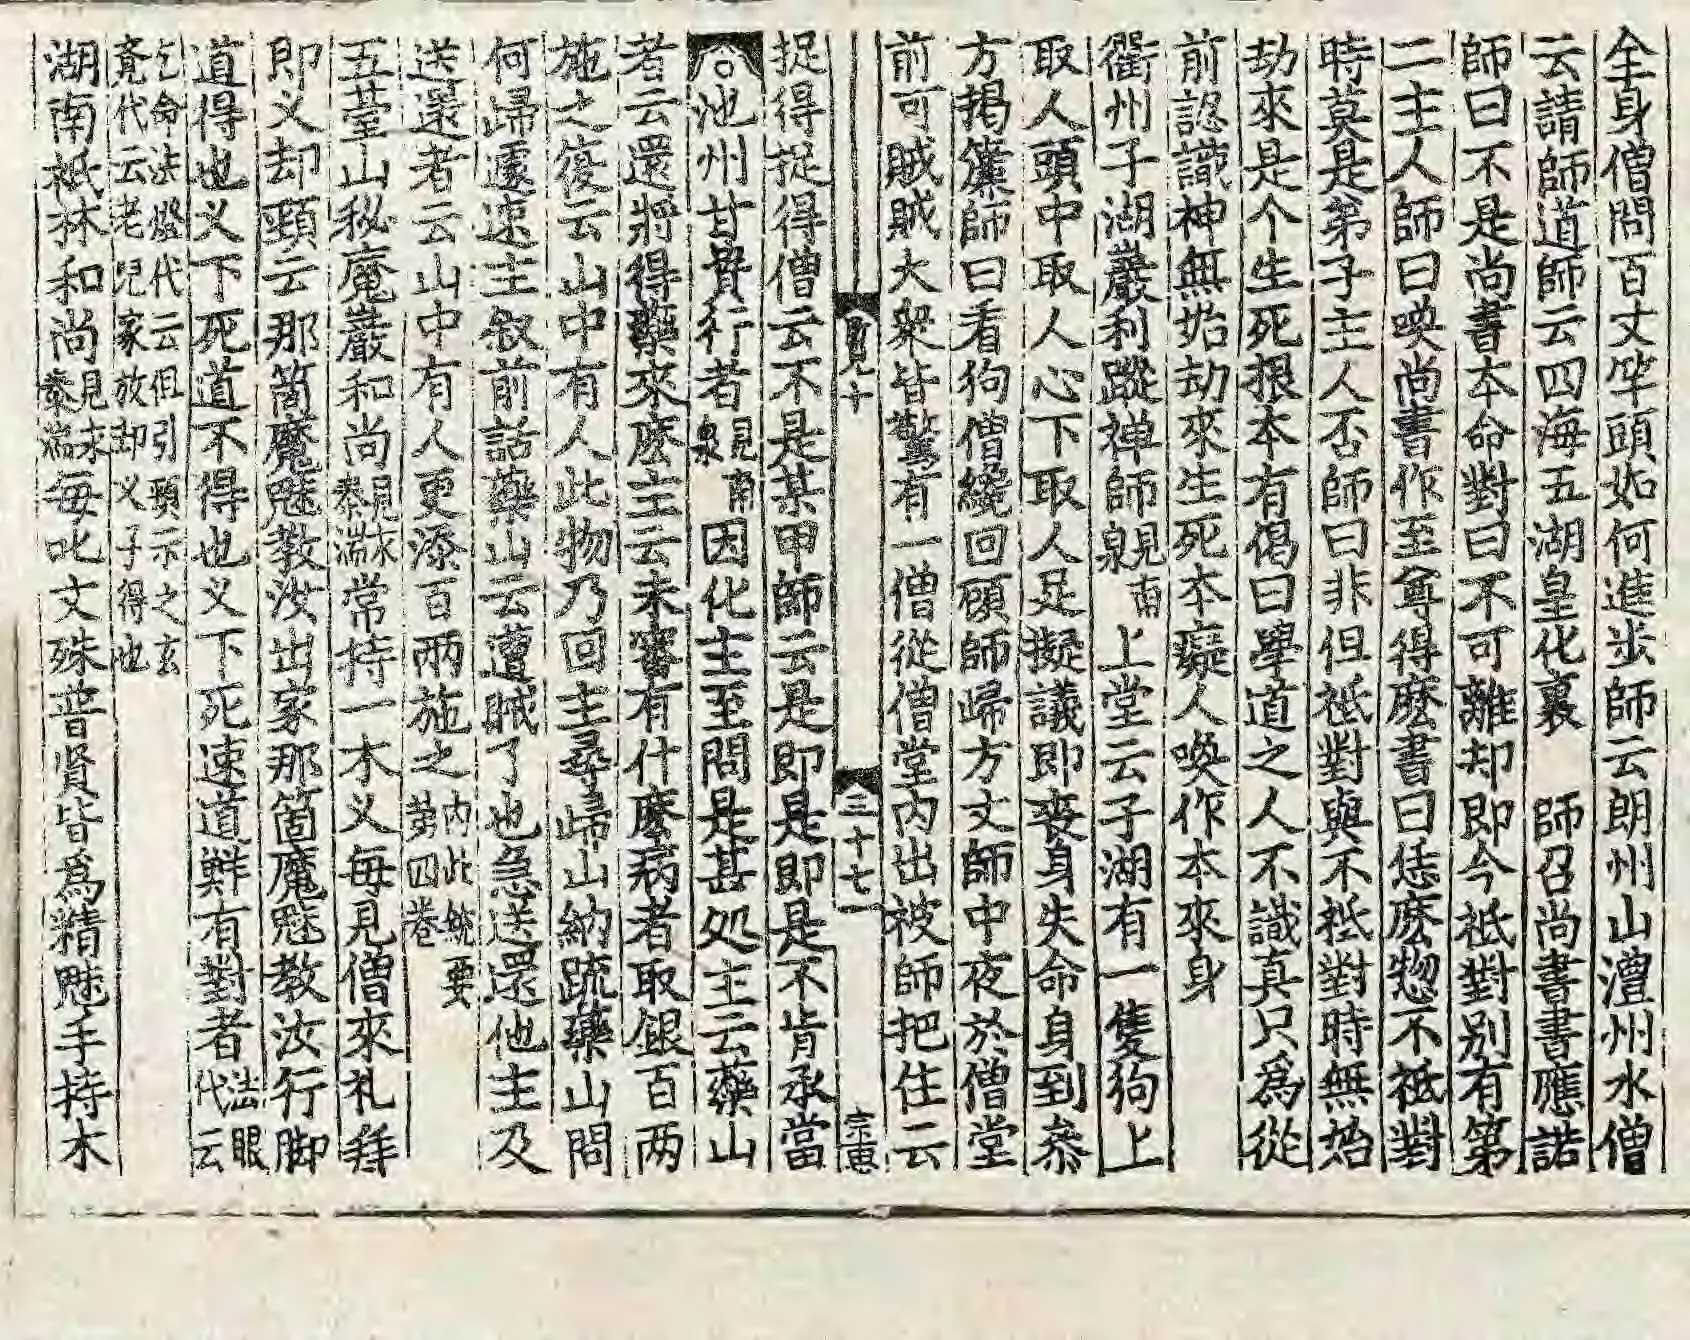 全身僧問百丈竿頭如何進步師云朗州山澧州水僧
云請師道師云四海五湖皇化裏　師召尚書書應諾
師曰不是尚書本命對曰不可離却即今祗對别有第
二主人師曰喚尚書作至尊得麽書曰恁麽惣不祗對
時莫是第子主人否師曰非但祗對與不祗對時無始
劫來是个生死根本有偈曰學道之人不識真只爲從
前認識神無始劫來生死本癡人喚作本來身
衢州子湖巖利蹤禅師見南泉上堂云子湖有一隻狗上
取人頭中取人心下取人足擬議即喪身失命身到叅
方揭簾師曰看狗僧繞回頭師歸方丈師中夜於僧堂
前可賊賊大衆皆驚有一僧從僧堂內出被師把住云
三十七
捉得捉得僧云不是某甲師云是即是即是不肯承當
池州甘贄行者見南泉因化主至問是甚処主云藥山
者云還將得藥來麽主云未審有什麽病者取銀百两
施之復云山中有人此物乃回主尋歸山納疏藥山問
何歸遽速主叙前話藥山云遭賊了也急送還他主及
送還者云山中有人更添百两施之內此統要第四卷
五䑓山秘魔巖和尚見永泰湍常持一木义每見僧來礼拜
即义却頸云那箇魔魅教汝出家那箇魔魅教汝行脚
道得也义下死道不得也义下死速道鮮有對者法眼代云
乞命法燈代云但引頸示之玄竟代云老兒家放却义子得也
湖南祗林和尚見永泰湍每叱文殊普贤皆爲精魅手持木